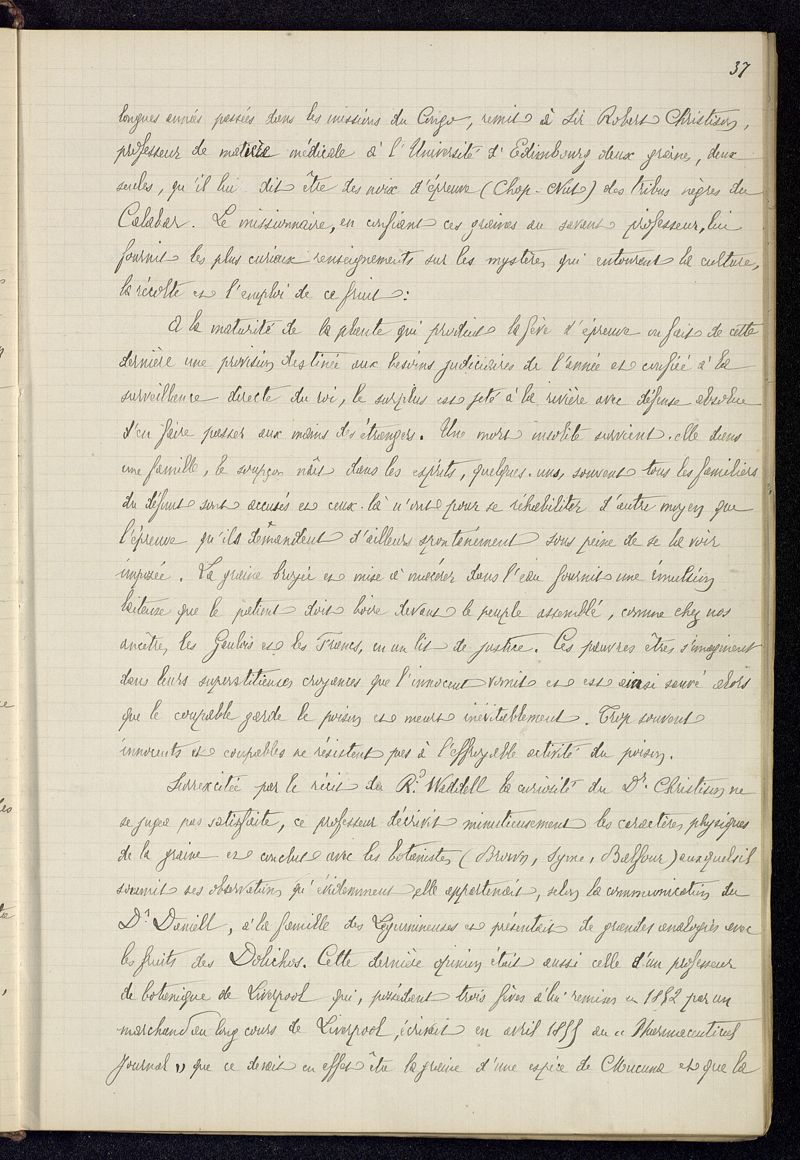 37
longues années passées dans les missions du Congo, remit à Sir Robert Christison,
professeur de matière médicale à l'Université d'Edimbourg deux graines, deux
seules, qu'il lui dit être des noix d'épreuve (Chop-Nut) des tribus nègres du
Calabar. Le missionnaire, en confiant ces graines au savant professeur, lui
fournit les plus curieux renseignements sur les mystères qui entourent la culture,
la récolte et l'emploi de ce fruit :
A la maturité de la plante qui produit la fève d'épreuve on fait de cette
dernière une provision destinée aux besoins judiciaires de l'année et confiée à la
surveillance directe du roi, le surplus est jeté à la rivière avec défense absolue
d'en faire passer aux mains des étrangers. Une mort insolite survient-elle dans
une famille, le soupçon naît dans les esprits, quelques-uns, souvent tous les familiers
du défunt sont accusés et ceux-là n'ont pour se réhabiliter d'autre moyen que
l'épreuve qu'ils demandent d'ailleurs spontanément sous peine de se la voir
imposée. La graine broyée et mise à macérer dans l'eau fournit une émulsion
laiteuse que le patient doit boire devant le peuple assemblé, comme chez nos
ancêtres les Gaulois et les Francs, en un lit de justice. Ces pauvres êtres s'imaginent
dans leurs superstitieuses croyances que l'innocent vomit et est ainsi sauvé alors
que le coupable garde le poison et meurt inévitablement. Trop souvent
innocents et coupables ne résistent pas à l'effroyable activité du poison.
Surexcitée par le récit du Rd Waddell la curiosité du Dr Christison ne
se jugea pas satisfaite, ce professeur décrivit minutieusement les caractères physiques
de la graine et conclut avec les botanistes (Brown, Syme, Balfour) auxquels il
soumit ses observations qu'évidemment elle appartenait, selon la communication du
Dr Daniell, à la famille des Légumineuses et présentait de grandes analogies avec
les fruits des Dolichos. Cette dernière opinion était aussi celle d'un professeur
de botanique de Liverpool qui, possédant trois fèves à lui remises en 1852 par un
marchand au long cours de Liverpool, écrivait en avril 1855 au « Pharmaceutical
Journal » que ce devait en effet être la graine d'une espèce de Mucuna et que la